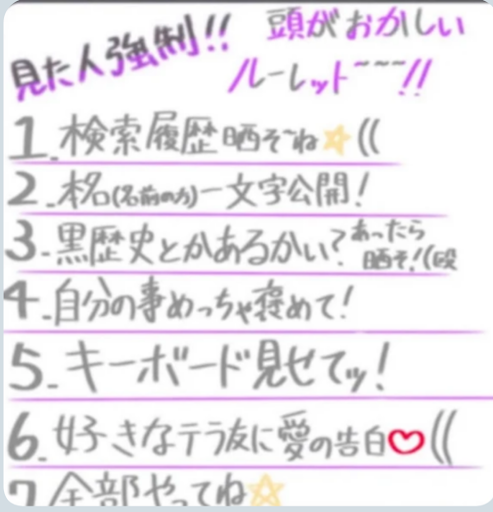 見た人強制!! 頭がおかしい
ルーレット~~~!!
1.検索履歴晒そ~ね☆((
2.本名(名前の方)一文字公開!
3.黒歴史とかあるかい?あったら
晒そ!(殴
4.自分の事めっちゃ褒めて!
5.キーボード見せてッ!
6.好きなテラ友に愛の告白♡((
7.全部やってね☆